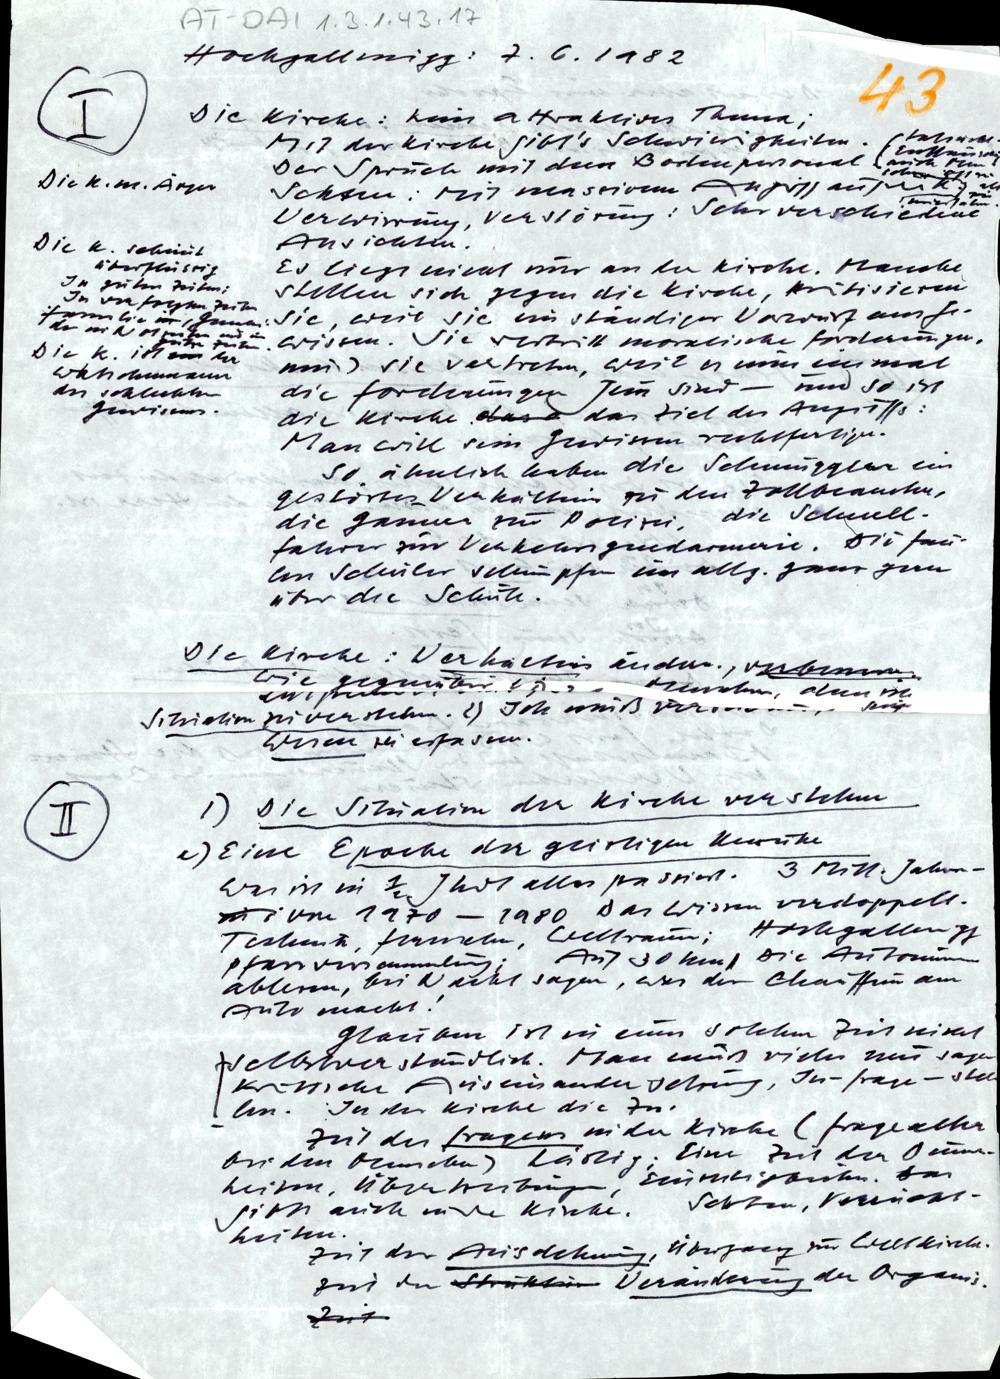 AT-DAI 1.3.1.43.17
Hochgallmigg: 7. 6. 1982
43
I
Die Kirche: kein attraktives Thema;
Mit der Kirche gibt's Schwierigkeiten.
Der Spruch mit dem Bodenpersonal
Die K. m. Ärger
Sekten: mit massivem Angriff auf
Verwirrung, Verstörung: Sehr verschiedene
Ansichten.
Die K. scheint
überflüssig
In guten Zeiten:
In verfolgten Zeiten
Die K. ist
Watschenmann
des schlechten
Gewissens.
Es liegt nicht nur an der Kirche. Manche
stellen sich gegen die Kirche, kritisieren
sie, weil sie ein ständiger Vorwurf ans Ge-
wissen. Sie vertritt moralische Forderungen,
muß sie vertreten, weil es nun einmal
die Forderungen Jesu sind – und so ist
die Kirche das Ziel des Angriffs:
Man will sein Gewissen rechtfertigen.
So ähnlich haben die Schmuggler ein
gestörtes Verhältnis zu den Zollbeamten,
die Gauner zur Polizei, die Schnell-
fahrer zur Verkehrsgendarmerie. Die fau-
len Schüler schimpfen im allg. ganz gern
über die Schule.
Die Kirche: Verhältnis ändern,
wie gegenüber
Situation zu verstehen. 2) Ich muß
Wesen zu erfassen.
II
1) Die Situation der Kirche verstehen
a) Eine Epoche der geistigen Unruhe
Was ist in 1/2 Jhdt alles passiert. 3 Mill. Jahre –
von 1970 – 1980 Das Wissen verdoppelt.
Technik, Fernsehen, Weltraum; Hochgallmigg
Pfarrversammlung; Auf 30 km Die Autonummer
ablesen, bei Nacht sagen, was der Chauffeur am
Auto macht!
Glauben ist in einer solchen Zeit nicht
selbstverständlich. Man muß vieles neu sagen
Kritische Auseinandersetzung, In-frage-stel
len. In der Kirche die
Zeit des Fragens in der Kirche (Fragealter
bei den Menschen) Lästig; Eine Zeit der Dumm-
heiten, Übertreibungen, Einseitigkeiten. Das
gibt's auch in der Kirche. Sekten, Verrückt-
heiten.
Zeit der Ausdehnung, Übergang zur Weltkirche.
Zeit der Struktur Veränderung der Organis.
Zeit